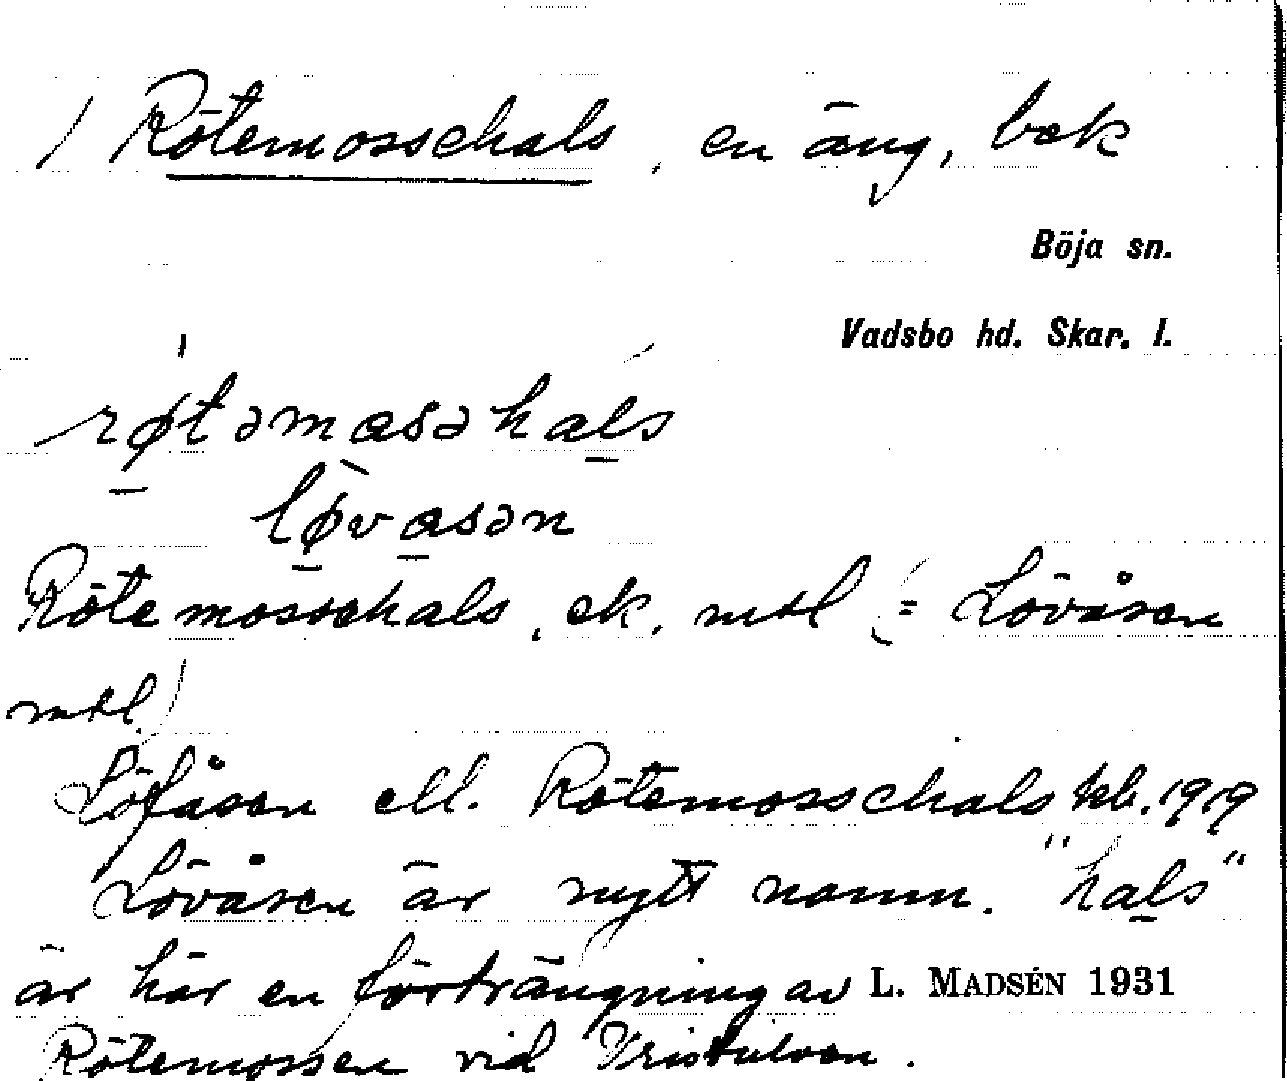 / Rötemossehals, en äng, bek
Böja sn.
Vadsbo hd. Skar. l.
røtəmasəhals
løvasən
Rötemossehals, ek. mtl (= Lövåsen
mtl.)
Löfåsen ell. Rötemossehals kb. 1919
Lövåsen är nytt namn. "hals"
är här en förträngning av
L. MADSÉN 1931
Rötemossen vid